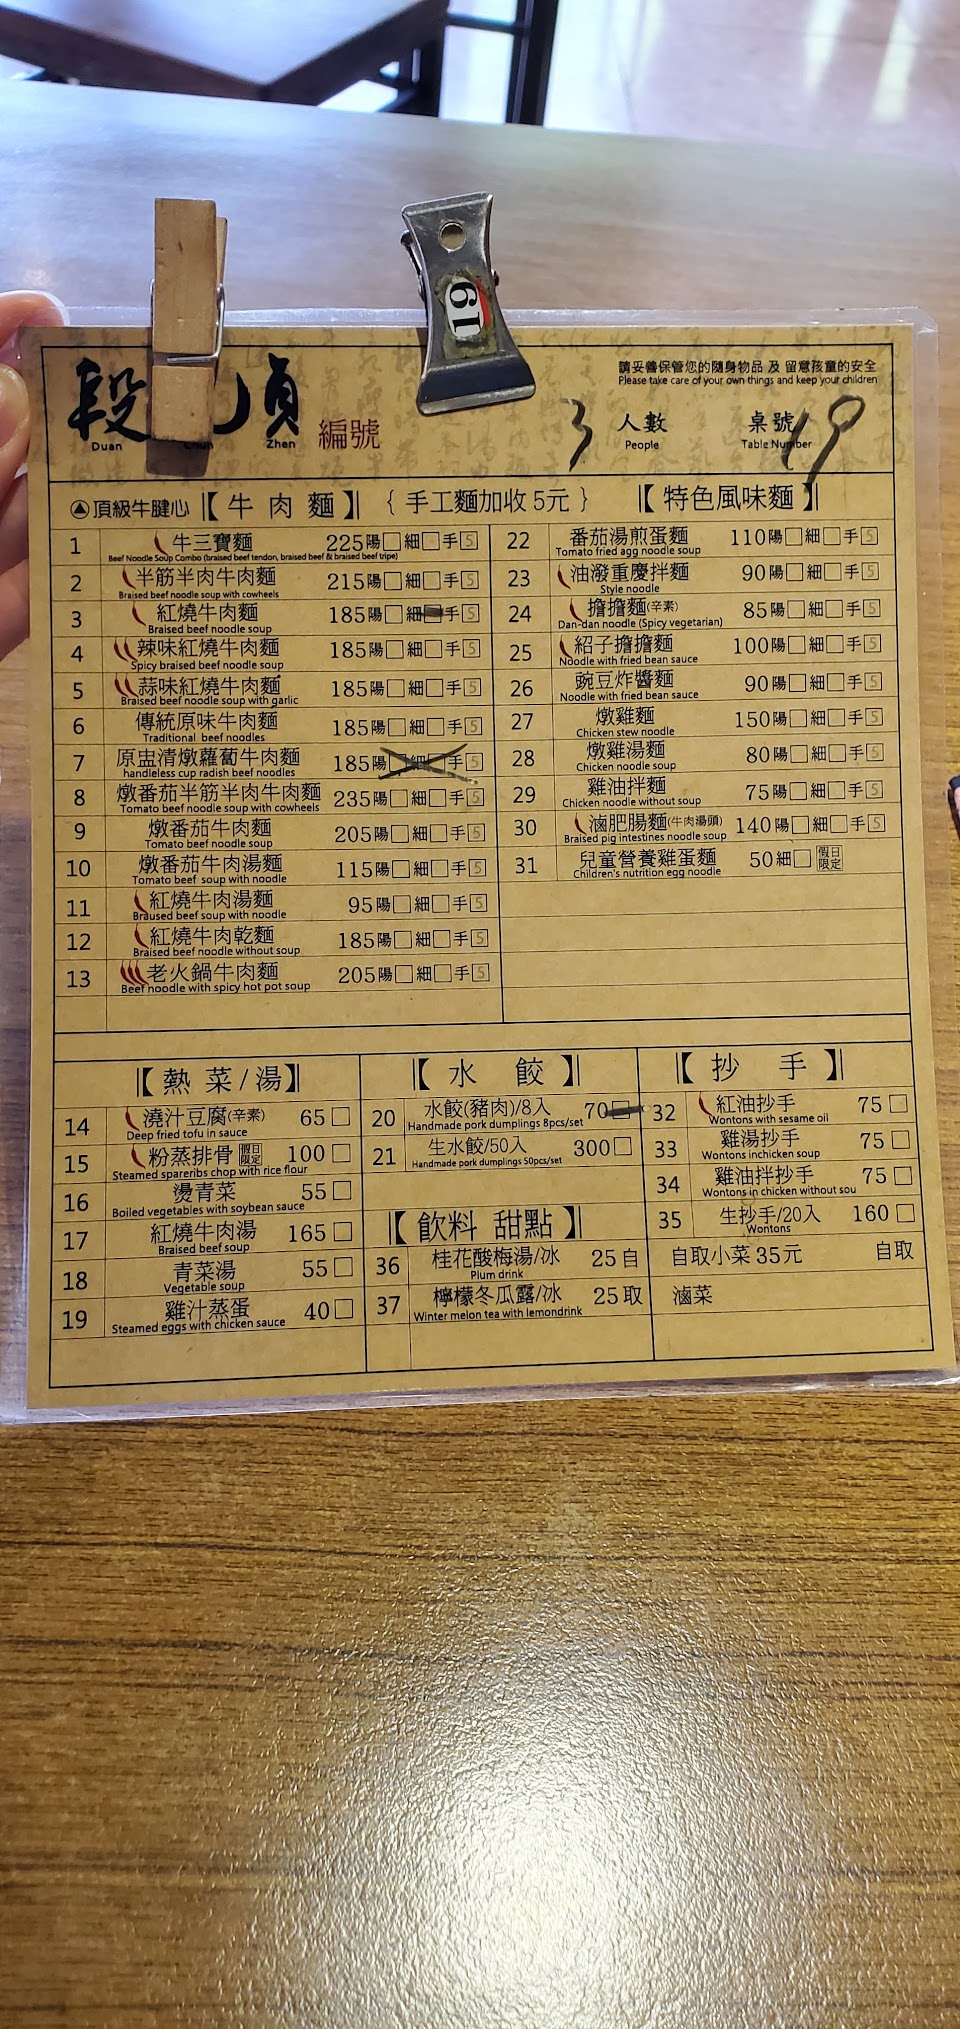 19
請妥善保管您的隨身物品 及 留意孩童的安全
Please take care of your own things and keep your children
段 貞
Duan Chun Zhen
編號
3 人數
People
桌號 19
Table Number
頂級牛腱心【牛肉麵】{手工麵加收5元}
1 牛三寶麵 225 陽□ 細□ 手5
Beef Noodle Soup Combo (braised beef tendon, braised beef & braised beef tripe)
2 半筋半肉牛肉麵 215 陽□ 細□ 手5
Braised beef noodle soup with cowheels
3 紅燒牛肉麵 185 陽□ 細□ 手5
Braised beef noodle soup
4 辣味紅燒牛肉麵 185 陽□ 細□ 手5
Spicy braised beef noodle soup
5 蒜味紅燒牛肉麵 185 陽□ 細□ 手5
Braised beef noodle soup with garlic
6 傳統原味牛肉麵 185 陽□ 細□ 手5
Traditional beef noodles
7 原盅清燉蘿蔔牛肉麵 185 陽□ 細□ 手5
handleless cup radish beef noodles
8 燉番茄半筋半肉牛肉麵 235 陽□ 細□ 手5
Tomato beef noodle soup with cowheels
9 燉番茄牛肉麵 205 陽□ 細□ 手5
Tomato beef noodle soup
10 燉番茄牛肉湯麵 115 陽□ 細□ 手5
Tomato beef soup with noodle
11 紅燒牛肉湯麵 95 陽□ 細□ 手5
Braused beef soup with noodle
12 紅燒牛肉乾麵 185 陽□ 細□ 手5
Braised beef noodle without soup
13 老火鍋牛肉麵 205 陽□ 細□ 手5
Beef noodle with spicy hot pot soup
【特色風味麵】
22 番茄湯煎蛋麵 110 陽□ 細□ 手5
Tomato fried agg noodle soup
23 油潑重慶拌麵 90 陽□ 細□ 手5
Style noodle
24 擔擔麵(辛素) 85 陽□ 細□ 手5
Dan-dan noodle (Spicy vegetarian)
25 紹子擔擔麵 100 陽□ 細□ 手5
Noodle with fried bean sauce
26 豌豆炸醬麵 90 陽□ 細□ 手5
Noodle with fried bean sauce
27 燉雞麵 150 陽□ 細□ 手5
Chicken stew noodle
28 燉雞湯麵 80 陽□ 細□ 手5
Chicken noodle soup
29 雞油拌麵 75 陽□ 細□ 手5
Chicken noodle without soup
30 滷肥腸麵(牛肉湯頭) 140 陽□ 細□ 手5
Braised pig intestines noodle soup
31 兒童營養雞蛋麵 50 細□ 假日限定
Children's nutrition egg noodle
【熱菜/湯】
14 澆汁豆腐(辛素) 65 □
Deep fried tofu in sauce
15 粉蒸排骨 假日限定 100 □
Steamed spareribs chop with rice flour
16 燙青菜 55 □
Boiled vegetables with soybean sauce
17 紅燒牛肉湯 165 □
Braised beef soup
18 青菜湯 55 □
Vegetable soup
19 雞汁蒸蛋 40 □
Steamed eggs with chicken sauce
【水餃】
20 水餃(豬肉)/8入 70 □
Handmade pork dumplings 8pcs/set
21 生水餃/50入 300 □
Handmade pork dumplings 50pcs/set
【飲料 甜點】
36 桂花酸梅湯/冰 25 自
Plum drink
37 檸檬冬瓜露/冰 25 取
Winter melon tea with lemondrink
【抄手】
32 紅油抄手 75 □
Wontons with sesame oil
33 雞湯抄手 75 □
Wontons inchicken soup
34 雞油拌抄手 75 □
Wontons in chicken without sou
35 生抄手/20入 160 □
Wontons
自取小菜 35元 自取
滷菜